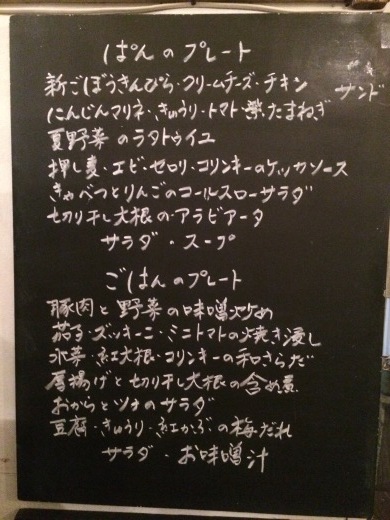 ぱんのプレート
新ごぼうきんぴら・クリームチーズ・チキン サンド
にんじんマリネ・きゅうり・トマト・紫たまねぎ
夏野菜のラタトゥイユ
押し麦・エビ・セロリ・コリンキーのケッカソース
きゃべつとりんごのコールスローサラダ
切り干し大根のアラビアータ
サラダ・スープ
ごはんのプレート
豚肉と野菜の味噌炒め
茄子・ズッキーニ・ミニトマトの焼き浸し
水菜・紅大根・コリンキーの和さらだ
厚揚げと切り干し大根の含め煮
おからとツナのサラダ
豆腐・きゅうり・紅かぶの梅だれ
サラダ・お味噌汁